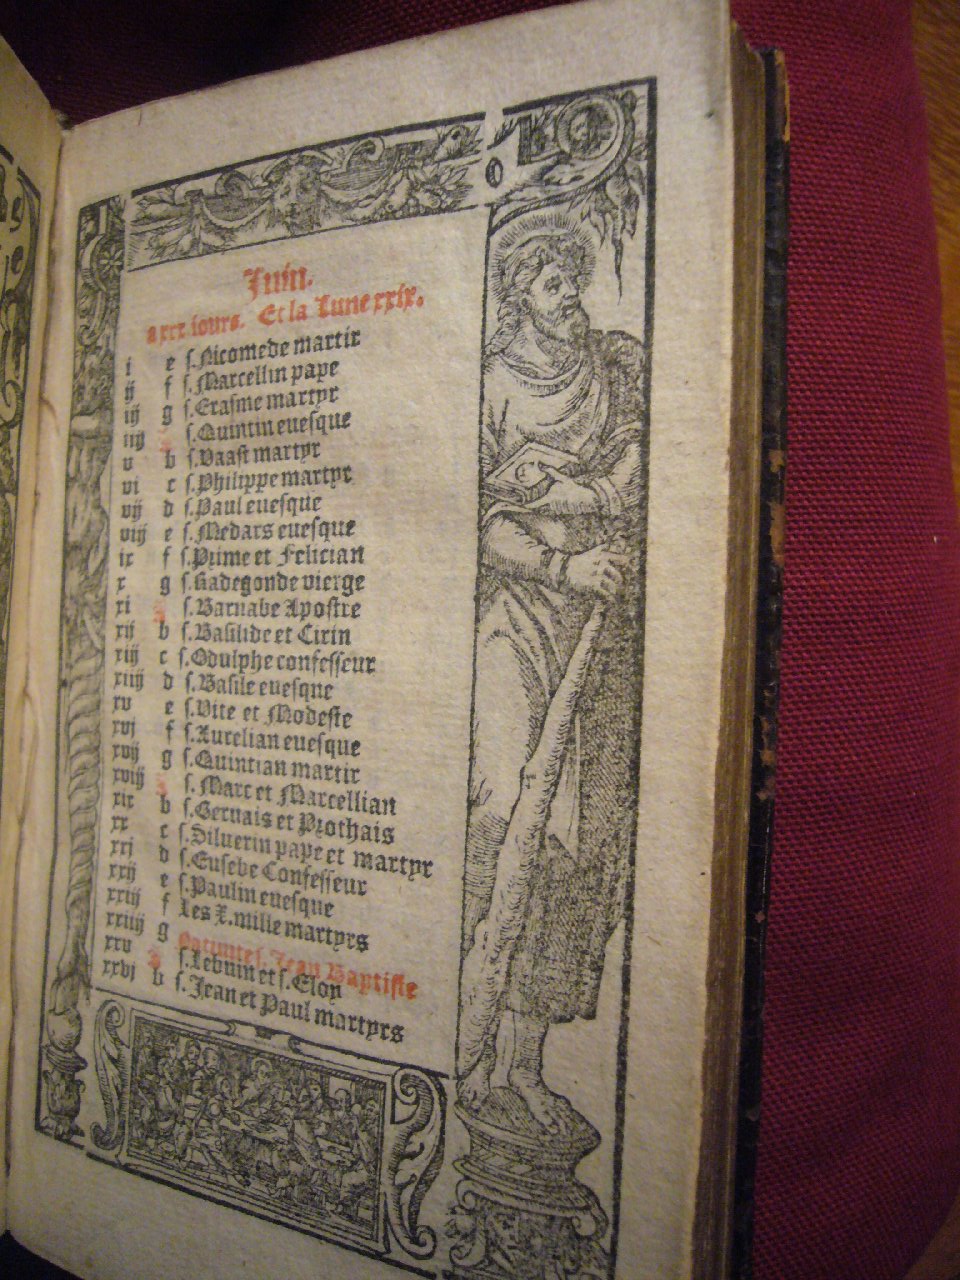 Juin.
a xxx iours. Et la Lune xxix.
i e ſ. Nicomede martir
ij f ſ. Marcellin pape
iij g ſ. Eraſme martyr
iiij ſ. Quintin eueſque
v b ſ. Vaast martyr
vi c ſ. Philippe martyr
vij d ſ. Paul eueſque
viij e ſ. Medars eueſque
ix f ſ. Prime et Felician
x g ſ. Radegonde vierge
xi ſ. Barnabe Apostre
xij b ſ. Basilide et Cirin
xiij c ſ. Odulphe confeſſeur
xiiij d ſ. Basile eueſque
xv e ſ. Vite et Modeste
xvj f ſ. Aurelian eueſque
xvij g ſ. Quintian martir
xviij ſ. Marc et Marcellian
xix b ſ. Geruais et Prothais
xx c ſ. Siluerin pape et martyr
xxj d ſ. Euſebe Confeſſeur
xxij e ſ. Paulin eueſque
xxiij f Les X. mille martyrs
xxiiij g ſ. Jean Baptiſte
xxv ſ. Lebuin et ſ. Eloy
xxvj b ſ. Jean et Paul martyrs